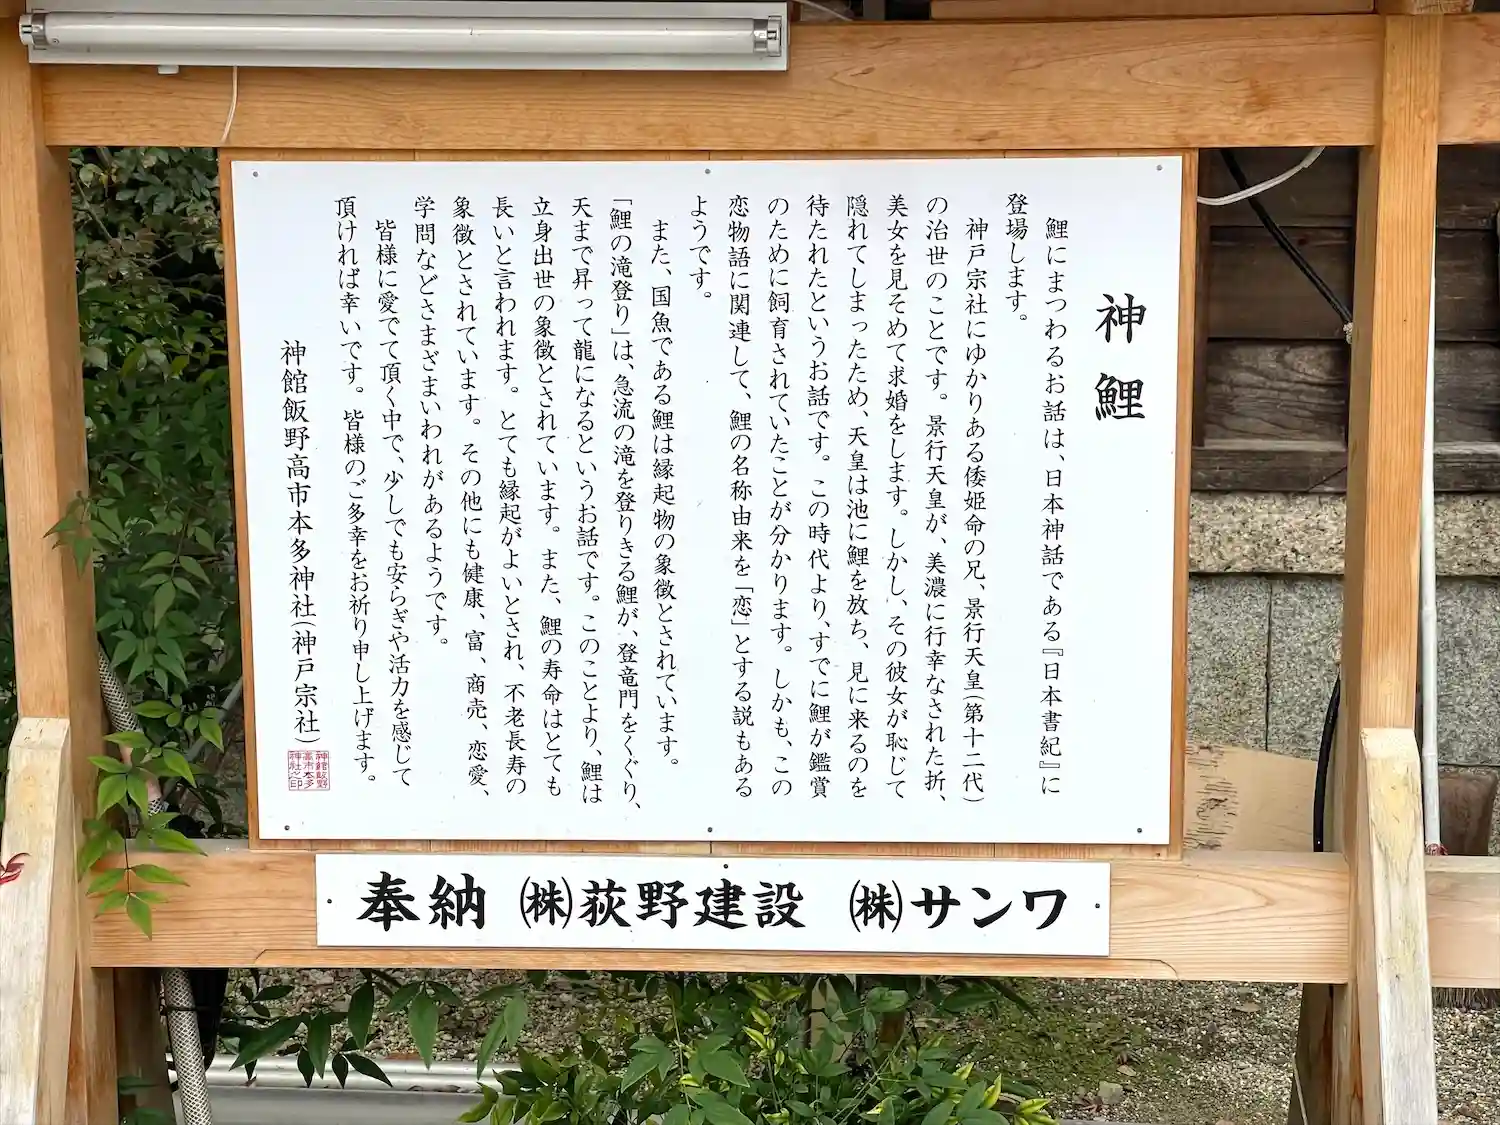 神鯉
鯉にまつわるお話は、日本神話である『日本書紀』に
登場します。
神戸宗社にゆかりある倭姫命の兄、景行天皇(第十二代)
の治世のことです。景行天皇が、美濃に行幸なされた折、
美女を見そめて求婚をします。しかし、その彼女が恥じて
隠れてしまったため、天皇は池に鯉を放ち、見に来るのを
待たれたというお話です。この時代より、すでに鯉が鑑賞
のために飼育されていたことが分かります。しかも、この
恋物語に関連して、鯉の名称由来を「恋」とする説もある
ようです。
また、国魚である鯉は縁起物の象徴とされています。
「鯉の滝登り」は、急流の滝を登りきる鯉が、登竜門をくぐり、
天まで昇って龍になるというお話です。このことより、鯉は
立身出世の象徴とされています。また、鯉の寿命はとても
長いと言われます。とても縁起がよいとされ、不老長寿の
象徴とされています。その他にも健康、富、商売、恋愛、
学問などさまざまいわれがあるようです。
皆様に愛でて頂く中で、少しでも安らぎや活力を感じて
頂ければ幸いです。皆様のご多幸をお祈り申し上げます。
神館飯野高市本多神社(神戸宗社)
神館飯野
高市本多
神社之印
奉納 ㈱荻野建設 ㈱サンワ